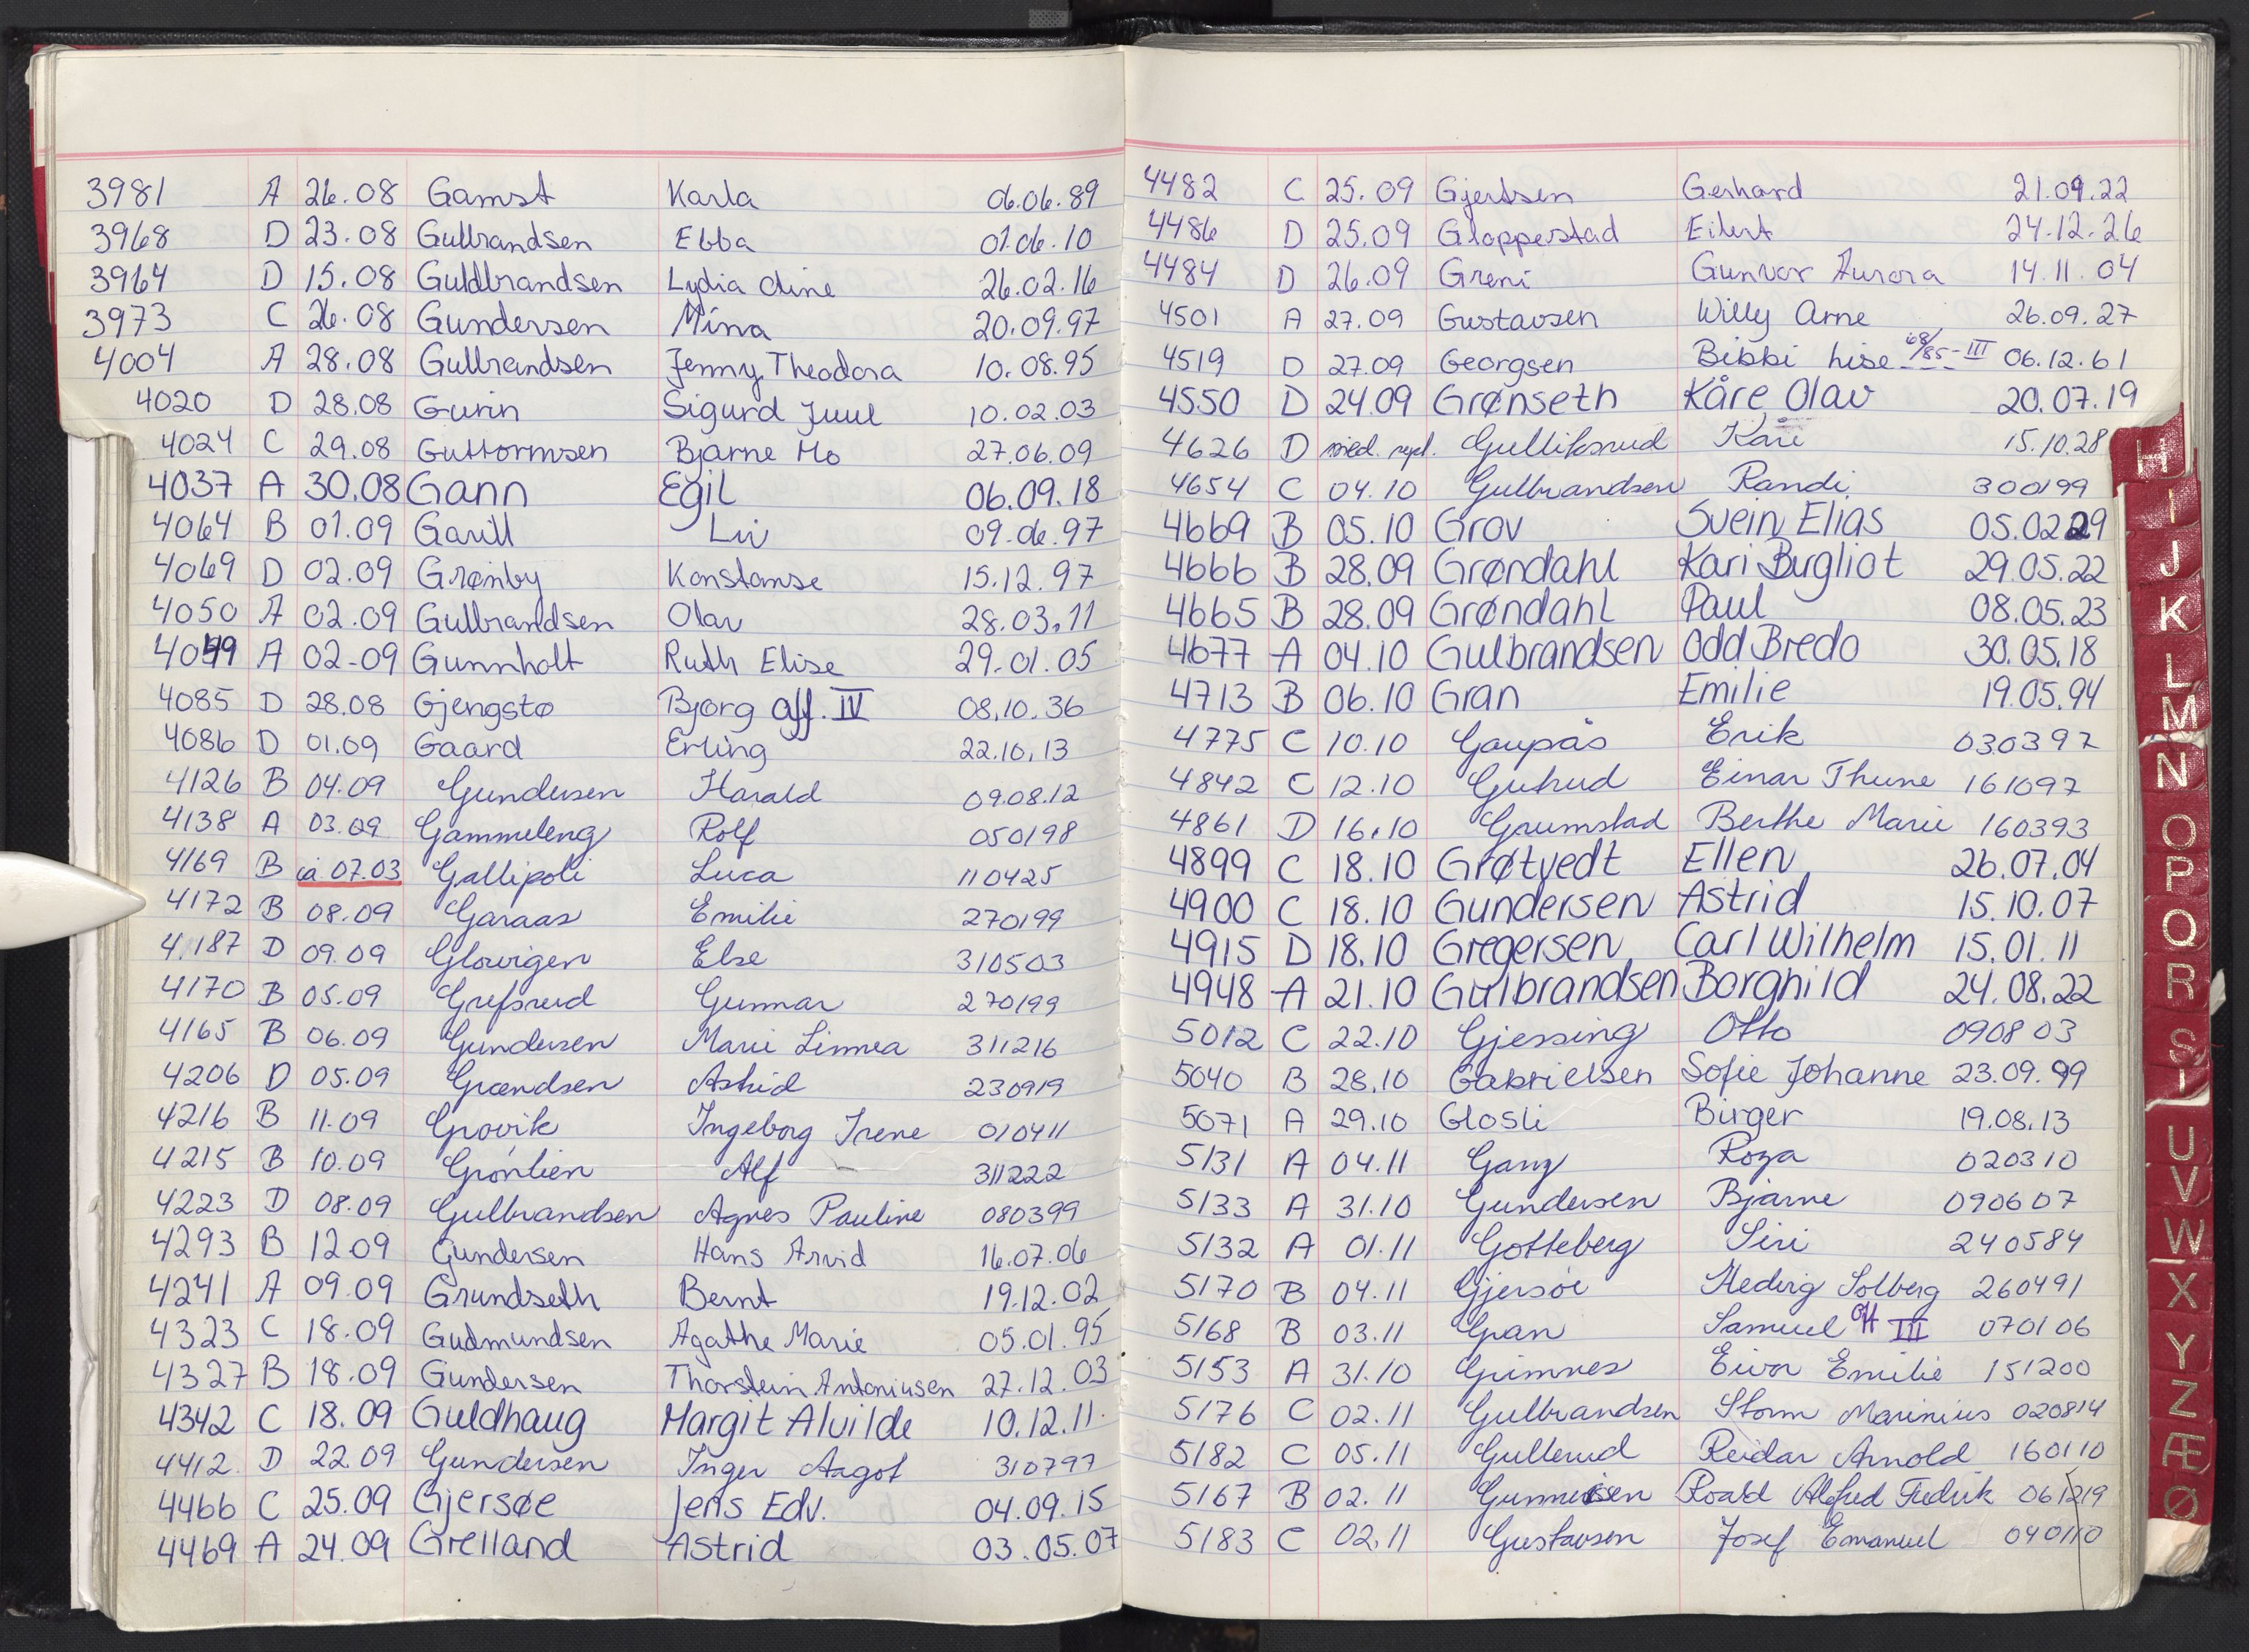 3981 A 26.08 Gamst Karla 06.06.89
3968 D 23.08 Gulbrandsen Ebba 01.06.10
3964 D 15.08 Guldbrandsen Lydia Oline 26.02.16
3973 C 26.08 Gundersen Mina 20.09.97
4004 A 28.08 Gulbrandsen Jenny Theodora 10.08.95
4020 D 28.08 Gurin Sigurd Juul 10.02.03
4024 C 29.08 Guttormsen Bjarne Mo 27.06.09
4037 A 30.08 Gann Egil 06.09.18
4064 B 01.09 Garill Liv 09.06.97
4069 D 02.09 Grønby Konstanse 15.12.97
4050 A 02.09 Gulbrandsen Olav 28.03.11
4049 A 02-09 Gunnholt Ruth Elise 29.01.05
4085 D 28.08 Gjengstø Bjørg off. IV 08.10.36
4086 D 01.09 Gaard Erling 22.10.13
4126 B 04.09 Gundersen Harald 09.08.12
4138 A 03.09 Gammeleng Rolf 050198
4169 B ca 07.03 Gallipoli Luca 110425
4172 B 08.09 Garaas Emilie 270199
4187 D 09.09 Glowigen Else 310503
4170 B 05.09 Grefsrud Gunnar 270199
4165 B 06.09 Gundersen Marie Linnea 311216
4206 D 05.09 Grændsen Astrid 230919
4216 B 11.09 Grovik Ingeborg Irene 010411
4215 B 10.09 Grønlien Alf 311222
4223 D 08.09 Gulbrandsen Agnes Pauline 080399
4293 B 12.09 Gundersen Hans Arvid 16.07.06
4241 A 09.09 Grundseth Bernt 19.12.02
4323 C 18.09 Gudmundsen Agathe Marie 05.01.95
4327 B 18.09 Gundersen Thorstein Antoniusen 27.12.03
4342 C 18.09 Guldhaug Margit Alvilde 10.12.11
4412 D 22.09 Gundersen Inger Aagot 310797
4466 C 25.09 Gjersøe Jens Edv. 04.09.15
4469 A 24.09 Grelland Astrid 03.05.07
4482 C 25.09 Gjertsen Gerhard 21.09.22
4486 D 25.09 Gloppestad Eilert 24.12.26
4484 D 26.09 Greni Gunvor Aurora 14.11.04
4501 A 27.09 Gustavsen Willy Arne 26.09.27
4519 D 27.09 Georgsen Bibbi Lise 68/85-III 06.12.61
4550 D 24.09 Grønseth Kåre Olav 20.07.19
4626 D med. rept. Gulliksrud Kåre 15.10.28
4654 C 04.10 Gulbrandsen Randi 300199
4669 B 05.10 Grov Svein Elias 05.02.29
4666 B 28.09 Grøndahl Kari Bugliot 29.05.22
4665 B 28.09 Grøndahl Paul 08.05.23
4677 A 04.10 Gulbrandsen Odd Bredo 30.05.18
4713 B 06.10 Gran Emilie 19.05.94
4775 C 10.10 Gaupås Erik 030397
4842 C 12.10 Gutrud Einar Thune 161097
4861 D 16.10 Grumstad Berthe Marie 160393
4899 C 18.10 Grøtvedt Ellen 26.07.04
4900 C 18.10 Gundersen Astrid 15.10.07
4915 D 18.10 Gregersen Carl Wilhelm 15.01.11
4948 A 21.10 Gulbrandsen Borghild 24.08.22
5012 C 22.10 Gjessing Otto 090803
5040 B 28.10 Gabrielsen Sofie Johanne 23.09.99
5071 A 29.10 Glosli Birger 19.08.13
5131 A 04.11 Ganz Roza 020310
5133 A 31.10 Gundersen Bjarne 090607
5132 A 01.11 Gotteberg Siri 240584
5170 B 04.11 Gjersøe Hedvig Solberg 260491
5168 B 03.11 Gran Samuel off III 070106
5153 A 31.10 Grimnes Eivor Emilie 151200
5176 C 02.11 Gulbrandsen Storm Marinius 020814
5182 C 05.11 Gullerud Reidar Arnold 160110
5167 B 02.11 Gunnersen Roald Alfred Fredrik 061219
5183 C 02.11 Gustavsen Josef Emanuel 040110
H
I
J
K
L
M
N
O
P
Q
R
S
U
V
W
X
Y
Z
Æ
Ø